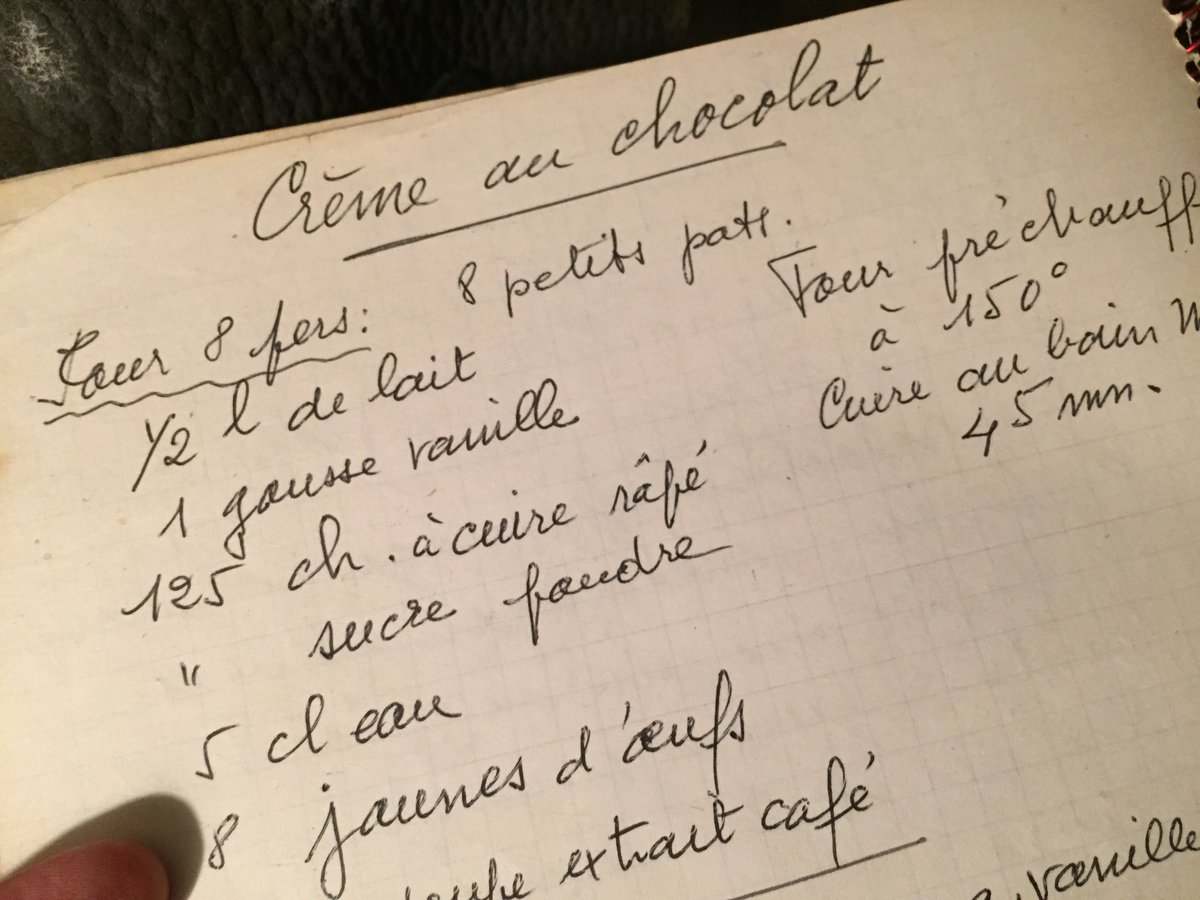 Crème au chocolat
Pour 8 pers: 8 petits pots.
1/2 l de lait
1 gousse vanille
125 ch. à cuire râpé
" sucre poudre
5 cl eau
8 jaunes d'œufs
extrait café
Four préchauff
à 150°
Cuire au bain M
45 mn.
vanille